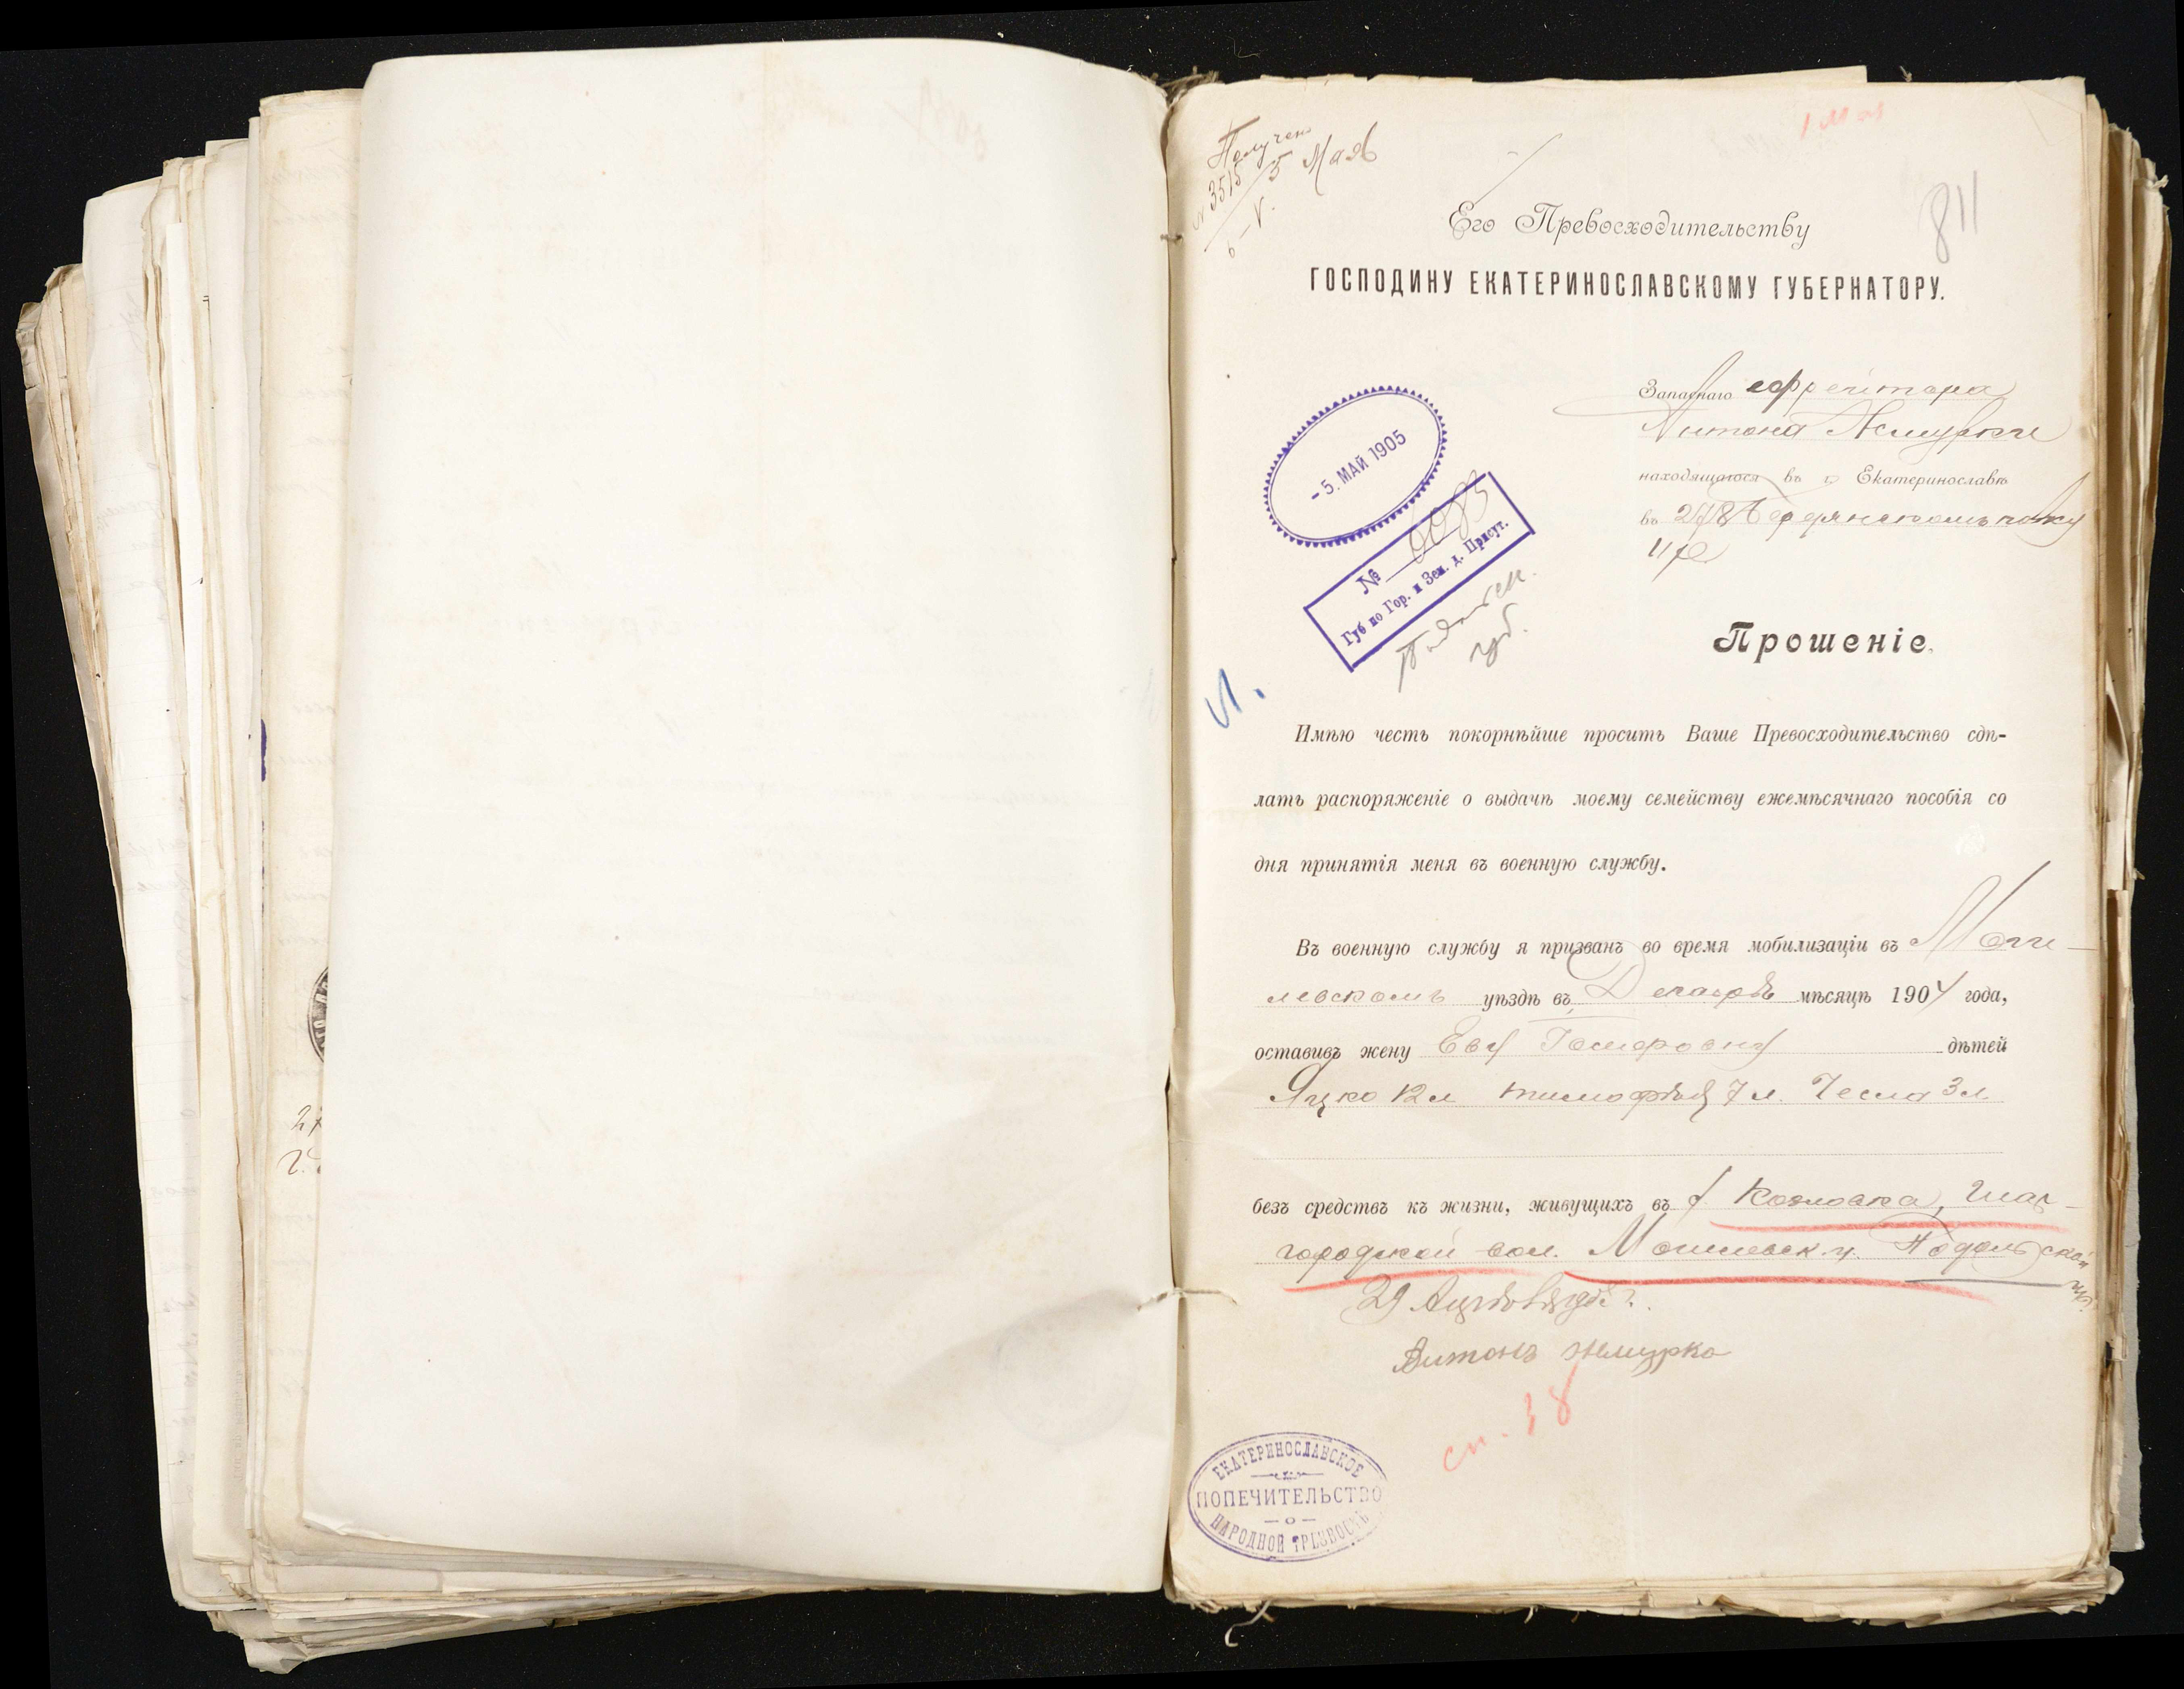 Получено
№ 3515 5 Мая
6–V.
1 Мая
811
Его Превосходительству
ГОСПОДИНУ ЕКАТЕРИНОСЛАВСКОМУ ГУБЕРНАТОРУ.
Запаснаго ефрейтора
Антона Жмурки
находящагося въ г. Екатеринославѣ
въ 278 Бердянскомъ полку
11 р
- 5. МАЙ 1905
№
Губ по Гор. и Зем. д. Присут.
Подольск.
губ.
Прошеніе.
Имѣю честь покорнѣйше просить Ваше Превосходительство сдѣ-
лать распоряженіе о выдачѣ моему семейству ежемѣсячнаго пособія со
дня принятія меня въ военную службу.
Въ военную службу я призванъ во время мобилизаціи въ Моги-
левскомъ уѣздѣ въ Декабрѣ мѣсяцѣ 1904 года,
оставивъ жену Еву дѣтей
Яцко 12 л Тимофѣя 7 л. Текла 3 л
безъ средствъ къ жизни, живущихъ въ с Козловка, Шар-
городской вол. Могилевск. у. Подольской
губ.
29
Антонъ Жмурко
сп. 38
ЕКАТЕРИНОСЛАВСКОЕ
ПОПЕЧИТЕЛЬСТВО
— о —
НАРОДНОЙ ТРЕЗВОСТИ